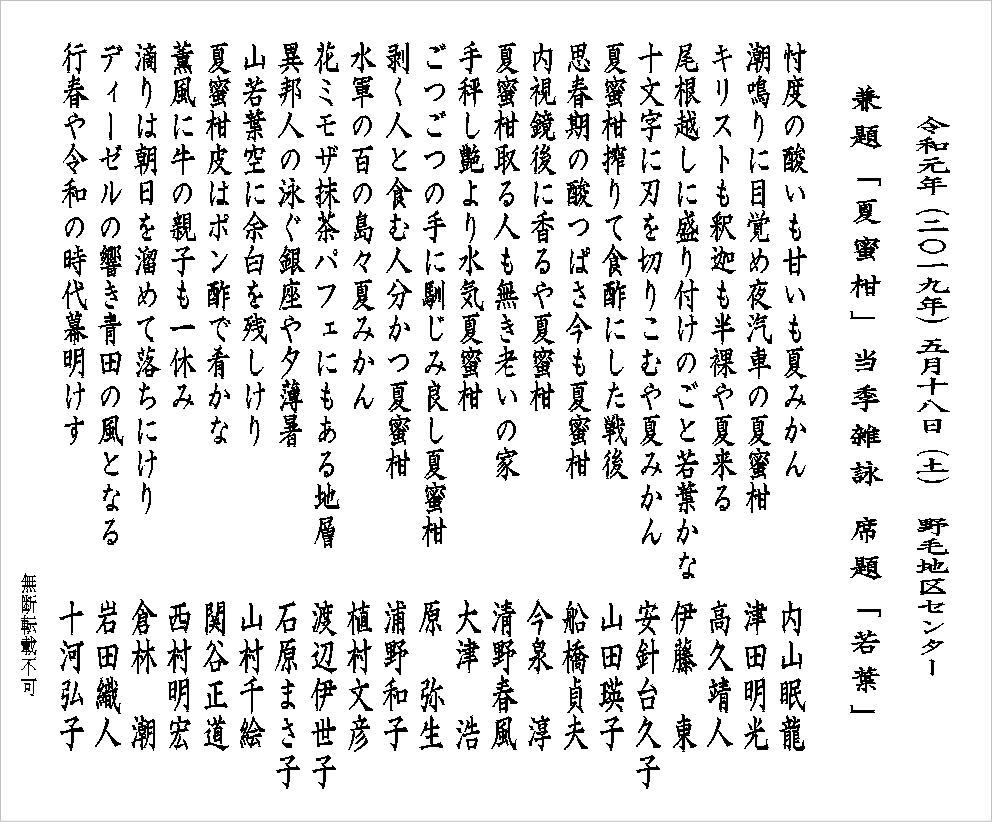 令和元年（二〇一九年）五月十八日（土）　野毛地区センター
兼題「夏蜜柑」　当季雑詠　席題「若葉」
忖度の酸いも甘いも夏みかん　内山眠龍
潮鳴りに目覚め夜汽車の夏蜜柑　津田明光
キリストも釈迦も半裸や夏来る　高久靖人
尾根越しに盛り付けのごと若葉かな　伊藤　東
十文字に刃を切りこむや夏みかん　安針台久子
夏蜜柑搾りて食酢にした戦後　山田瑛子
思春期の酸つぱさ今も夏蜜柑　船橋貞夫
内視鏡後に香るや夏蜜柑　今泉　淳
夏蜜柑取る人も無き老いの家　清野春風
手秤し艶より水気夏蜜柑　大津　浩
ごつごつの手に馴じみ良し夏蜜柑　原　弥生
剥く人と食む人分かつ夏蜜柑　浦野和子
水軍の百の島々夏みかん　植村文彦
花ミモザ抹茶パフェにもある地層　渡辺伊世子
異邦人の泳ぐ銀座や夕薄暑　石原まさ子
山若葉空に余白を残しけり　山村千絵
夏蜜柑皮はポン酢で肴かな　関谷正道
薫風に牛の親子も一休み　西村明宏
滴りは朝日を溜めて落ちにけり　倉林　潮
ディーゼルの響き青田の風となる　岩田織人
行春や令和の時代幕明けす　十河弘子
無断転載不可